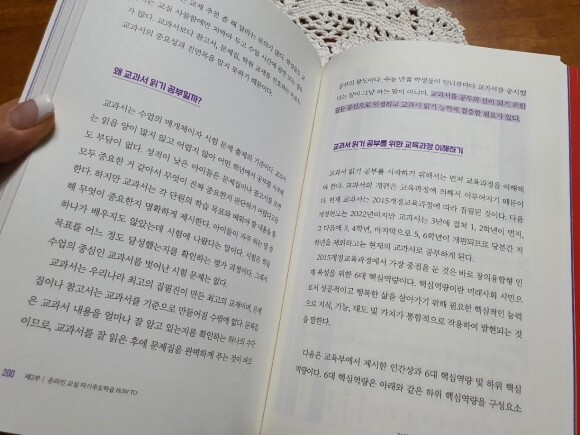 왜 교과서 읽기 공부일까?
교과서는 수업의 매개체이자 시험 문제 출제의 기준이다. 교과서
는 읽을 양이 많지 않고 어렵지 않아 어떤 학년에서 공부를 시작해
도 부담이 없다. 성적이 낮은 아이들은 문제집이나 참고서를 보면
모두 중요한 거 같아서 무엇이 진짜 중요한지 판단하기 어렵다고들
한다. 하지만 교과서는 각 단원의 학습 목표와 배워야 할 내용을 통
해 무엇이 중요한지 명확하게 제시한다. 아이들이 자주 하는 말 중
하나가 배우지도 않았는데 시험에 나왔다는 말이다. 시험은 학습
목표를 어느 정도 달성했는지를 확인하는 평가 과정이다. 그래서
수업의 중심인 교과서를 벗어난 시험 문제는 없다.
교과서는 우리나라 최고의 집필진이 만든 최고의 교재이며, 문제
집이나 참고서는 교과서를 기준으로 만들어질 수밖에 없다. 문제집
은 교과서 내용을 얼마나 잘 알고 있는지를 확인하는 하나의 수단
이므로, 교과서를 잘 읽은 후에 문제집을 완벽하게 푸는 것이
200 제2부 | 온라인 교실 자기주도학습 HOW TO
공부의 왕도이다. 수능 만점 학생들이 인터뷰마다 교과서를 중시했
다는 말이 그냥 하는 말이 아니다. 교과서를 공부의
교과서 읽기 능력에 집중할 필요가 있다.
교과서 읽기 공부를 위한 교육과정 이해하기
교과서 읽기 공부를 시작하기 위해서는 먼저 교육과정을 이해해
야 한다. 교과서의 개편은 교육과정에 의해서 이루어지기 때문이
다. 현재 교과서는 2015개정교육과정에 따라 집필된 것이다. 다음
개정연도는 2022년이지만 교과서는 3년에 걸쳐 1, 2학년이 먼저,
그 다음에 3, 4학년, 마지막으로 5, 6학년이 개편되므로 당분간 저
학년을 제외하고는 현재의 교과서로 공부하게 된다.
2015개정교육과정에서 가장 중점을 둔 것은 바로 창의융합형 인
재 육성을 위한 6대 핵심역량이다. 핵심역량이란 미래사회 시민으
로서 성공적이고 행복한 삶을 살아가기 위해 필요한 핵심적인 능력
으로 지식, 기능, 태도 및 가치가 통합적으로 작용하여 발현되는 것
을 말한다.
다음은 교육부에서 제시한 인간상과 6대 핵심역량 및 하위 핵심
역량이다. 6대 핵심역량은 아래와 같은 하위 핵심역량을 구성요소